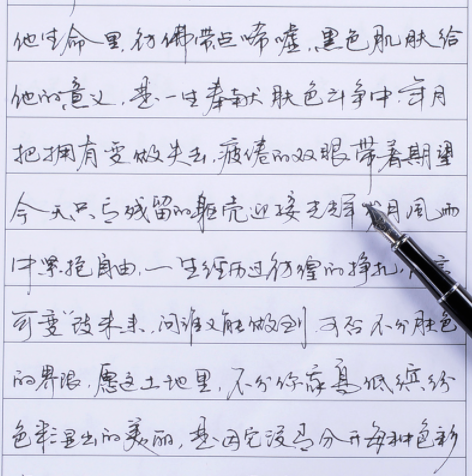 他生命里,彷佛带点唏嘘,黑色肌肤给
他的意义,是一生奉献 肤色斗争中.年月
把拥有变做失去,疲倦的双眼带着期望
今天只有残留的躯壳迎接光辉 月风雨
中紧抱自由,一生经历过彷徨的挣扎,
可变改未来,问谁又能做到,可否不分肤色
的界限,愿这土地里,不分你我高低缤纷
色彩溢出的美丽,是因它没有分开每种色彩